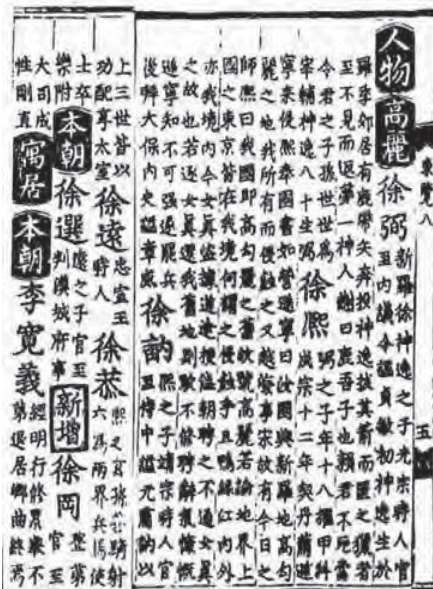 東覽八
五
人物 高麗 徐弼 新羅徐神逸之子光宗時人官
至內議令諡貞敏初神逸生於
羅季郊居有鹿帶矢奔投神逸拔其箭而匿之獵者
至不見而返夢一神人謝曰鹿吾子也賴君不死當
令君之子孫世世爲
宰輔神逸八十生弼
徐熙 弼之子年十八擢甲科
成宗十二年契丹蕭遜
寧來侵熙奉國書如營遜寧曰汝國興新羅地高句
麗之地我所有而侵蝕之又越海事宋故有今日之
師熙曰我國即高勾麗之舊故號高麗若論地界上
國之東京皆在我境何謂之侵蝕乎且鴨綠江內外
亦我境內今女眞盜據道途梗澁朝聘之不通女眞
之故也若逐女眞還我舊地則敢不修聘辭氣慷慨
遜寧知不可强遂罷兵
後拜大保內史諡章威
徐訥 熙之子 時人官
至侍中諡元肅訥以
上三世皆以
功配享太室
徐遠 忠宣王
時人
徐恭 熙之玄孫善騎射
六爲兩界兵馬使
士卒
樂附
本朝 徐選 遠之子官至
判漢城府事
新增 徐岡 登第
官至
大司成
性剛直
寓居 本朝 李寬義 經明行修累擧不
第退居鄕曲終焉